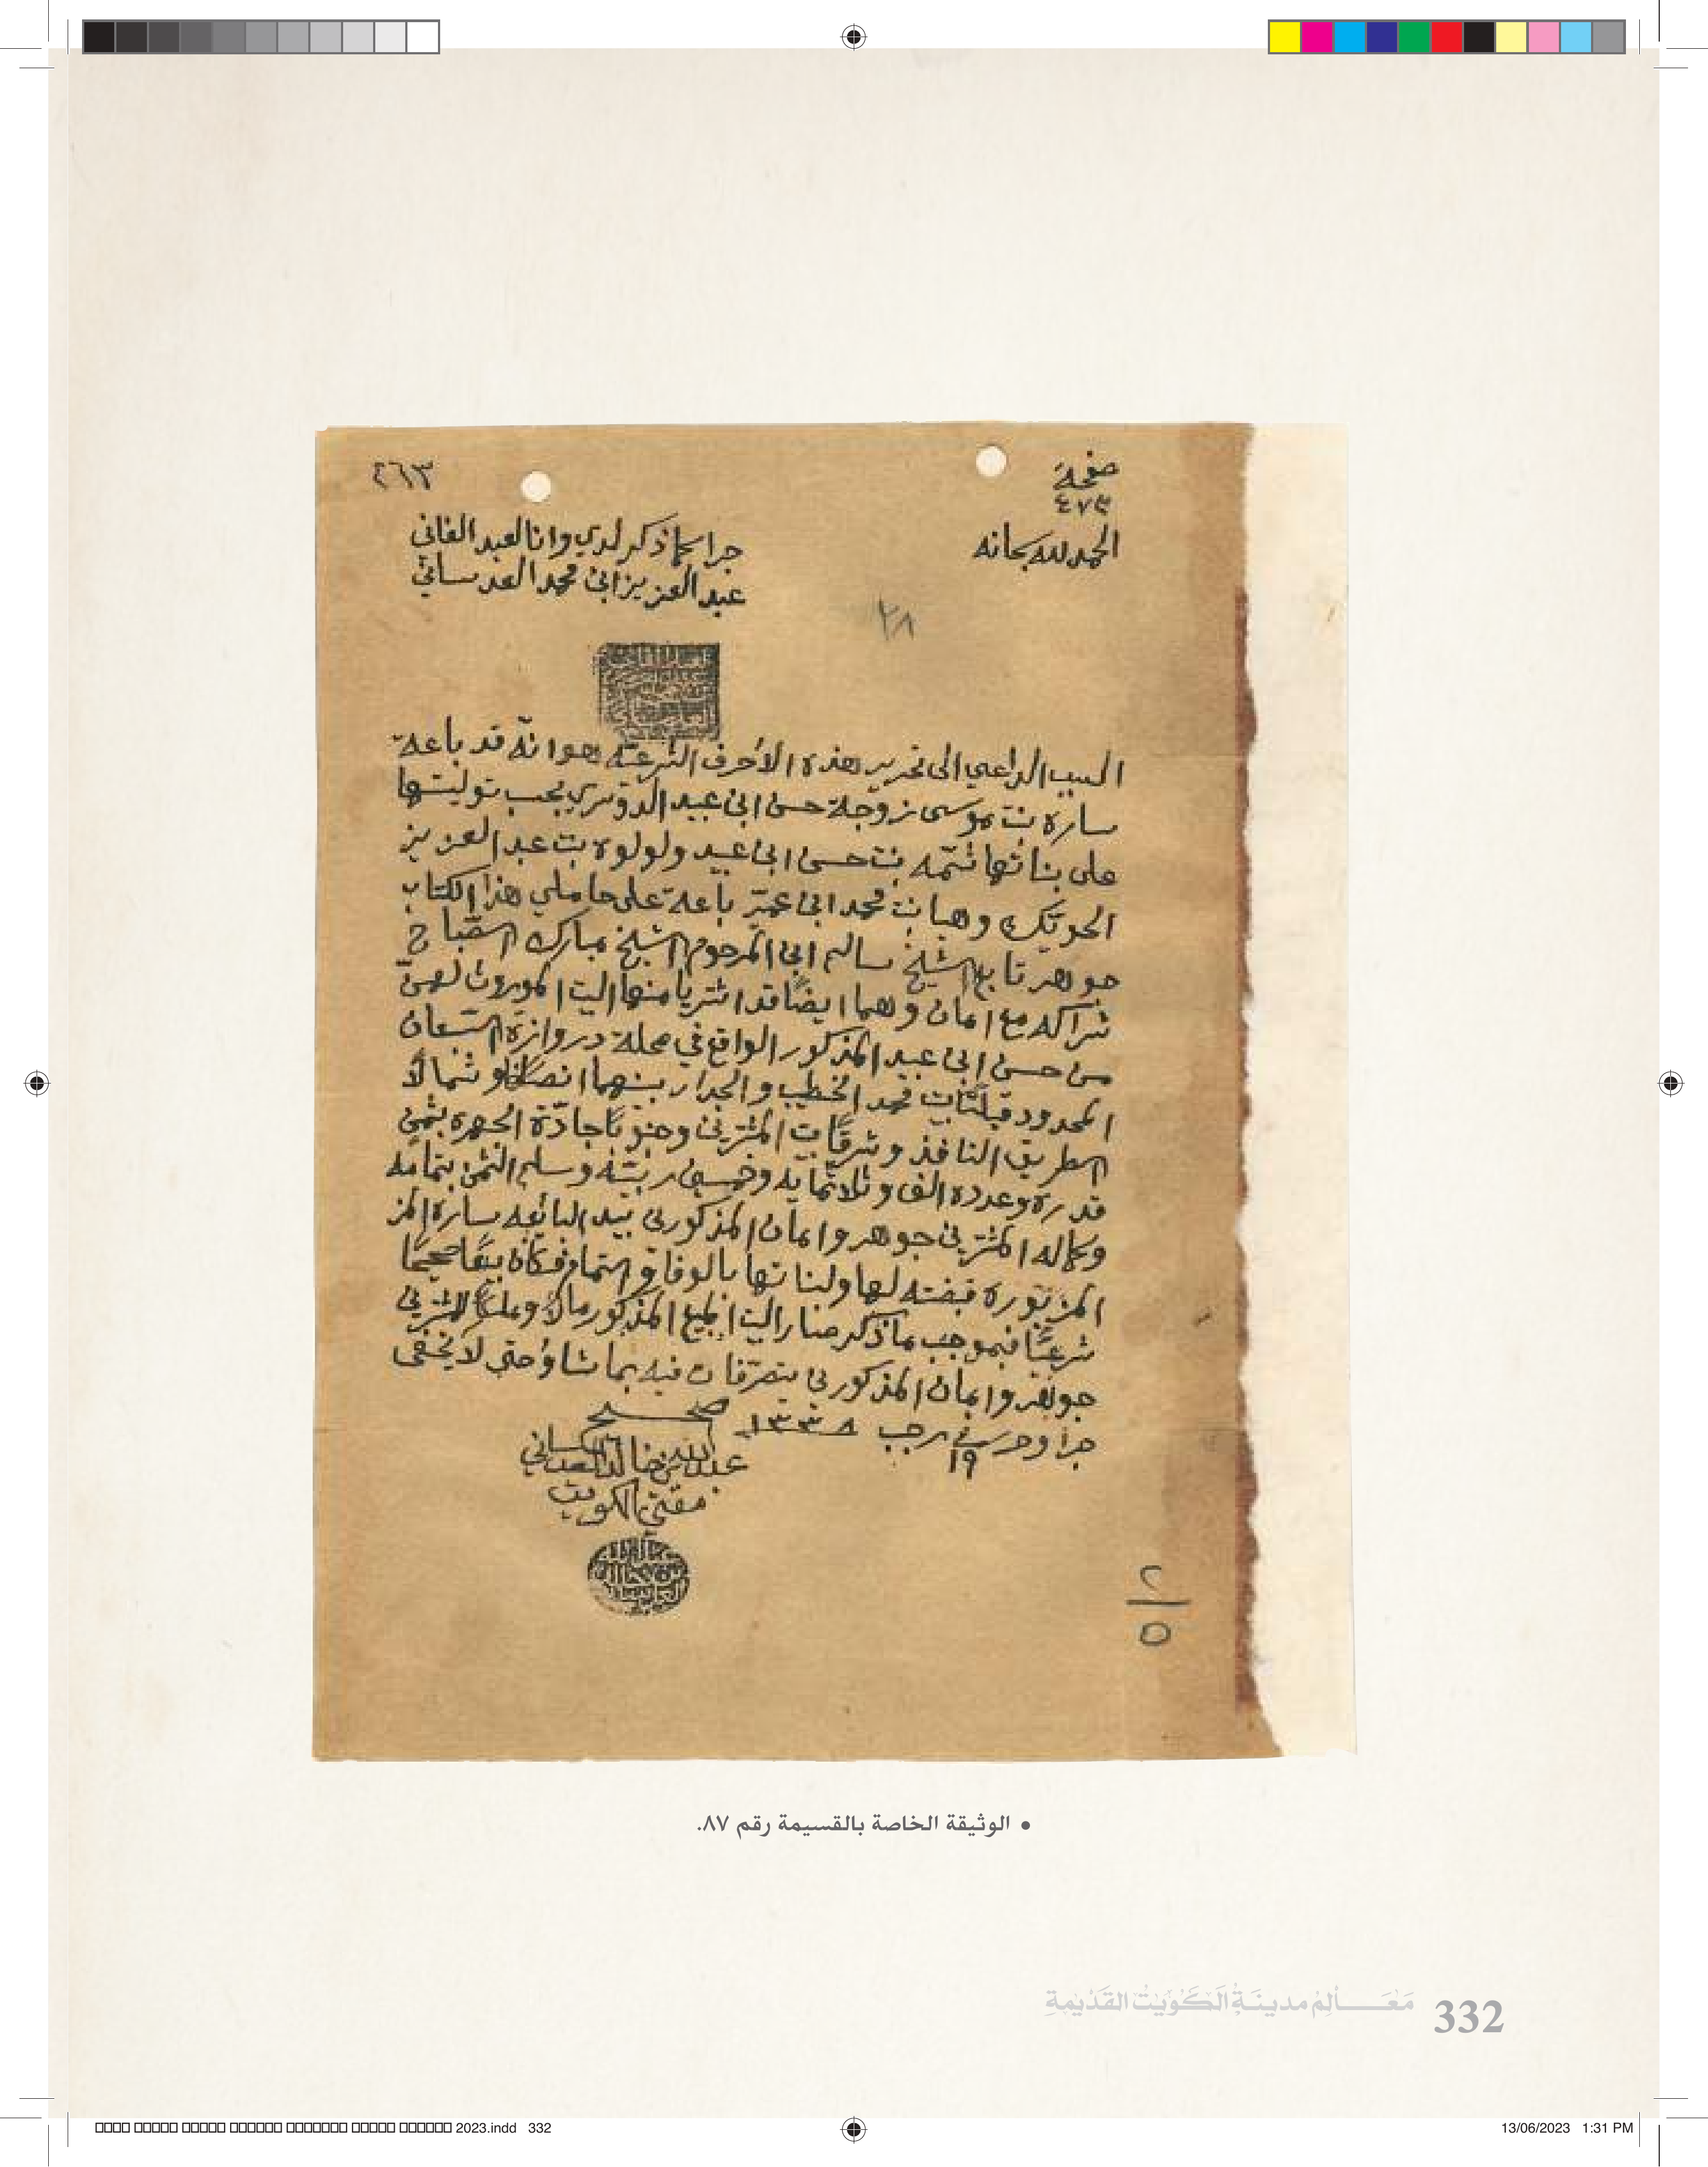 صفحة
٤٧٣
٤٦٣
الحمد لله سبحانه
جرا كما ذكر لدي وانا العبد الفاني
عبد العزيز ابن محمد العدساني
٢٨
السبب الداعي الى تحرير هذه الأحرف الشرعيّه هو انّه قد باعة
ساره بنت موسى زوجة حسن ابن عبيد الدوسري بحسب توليتها
على بناتها بنت حسن ابن عبيد ولولوه بنت عبد العزيز
وهيا بنت محمد ابن باعة على حاملي هذا الكتاب
جوهر تابع الشيخ سالم ابن المرحوم الشيخ مبارك الصّباح
شراكه مع امان وهما ايضًا قد اشتريا منها البيت الموروث لهنّ
من حسن ابن عبيد المذكور الواقع في محلة دروازة
المحدود قبلتًا بيت محمد الخطيب والجدار بينهما وشمالًا
الطريق النافذ وشرقًا بيت المشترين وجنوبًا جادّة الجهره بثمن
قدره وعدده الف وثلاثمايه وخمسين ربيّه وسلم الثمن بتمامه
وكماله المشترين جوهر وامان المذكورين بيد البائعه سارة المذ
المزبورة قبضته لها ولبناتها بالوفا والتمام فكان بيعًا صحيحًا
شرعيًّا فبموجب ما ذكر صار البيت المبيع المذكور مالًا وملكًا للمشترين
جوهر وامان المذكورين يتصرّفان فيه بما شاؤا حتى لا يخفى
جرا وحرر في ١٩ رجب ١٣٣٨
صحيح
عبدالله بن خالد العدساني
مفتي الكويت
٢/٥
• الوثيقة الخاصة بالقسيمة رقم ٨٧.
332 مَعَـــالِمُ مدينَـةِ الكُوَيْتْ القَدِيْمةِ
2023.indd 332
13/06/2023 1:31 PM